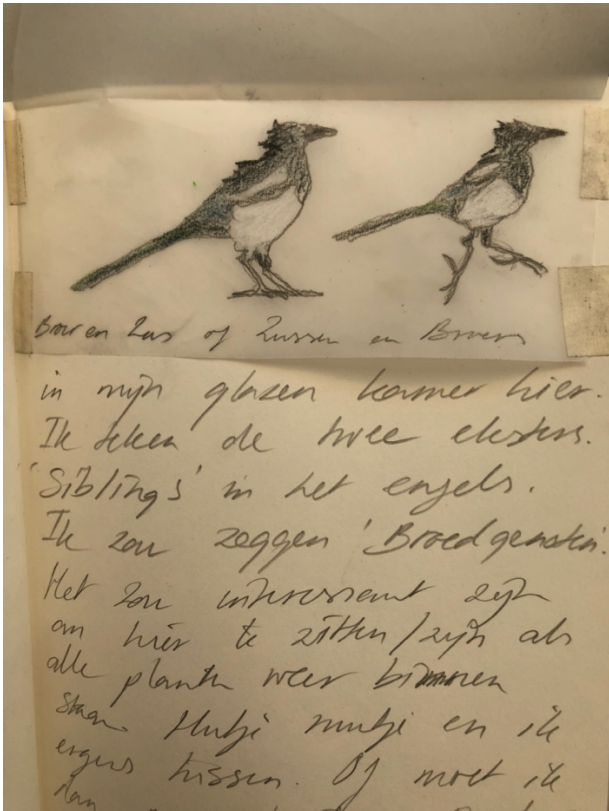 Broer en Zus of Zussen en Broers
in mijn glazen kamer hier.
Ik teken de twee eksters.
'Siblings' in het engels.
Ik zou zeggen 'Broedgenoten'.
Het zou interessant zijn
om hier te zitten/zijn als
alle planten weer binnen
staan Hutje mutje en ik
ergens tussen. Of moet ik
dan